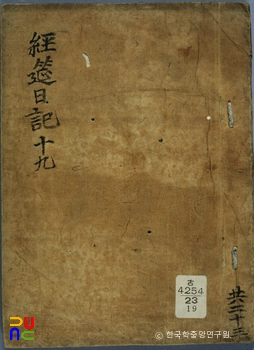 經筵日記 十九
共二十三
古
4254
23
19
ⓒ 한국학중앙연구원